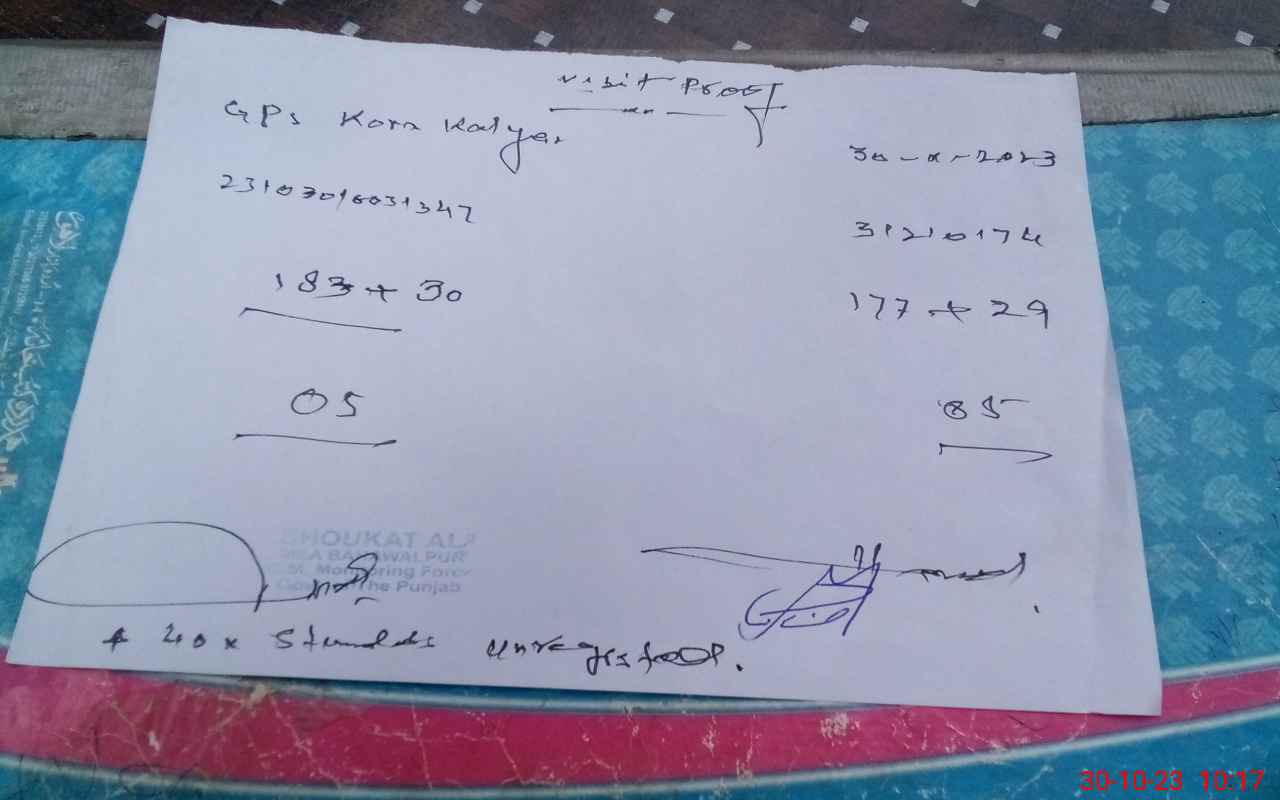 Visit Proof
GPS Kora Kalyar
30-X-2023
23107016031347
31210174
183 + 30
177 + 29
05
05
SHOUKAT ALI
MEA BAHAWALPUR
C.M. Monitoring Force
Govt of The Punjab
unregistered.
30-10-23 10:17